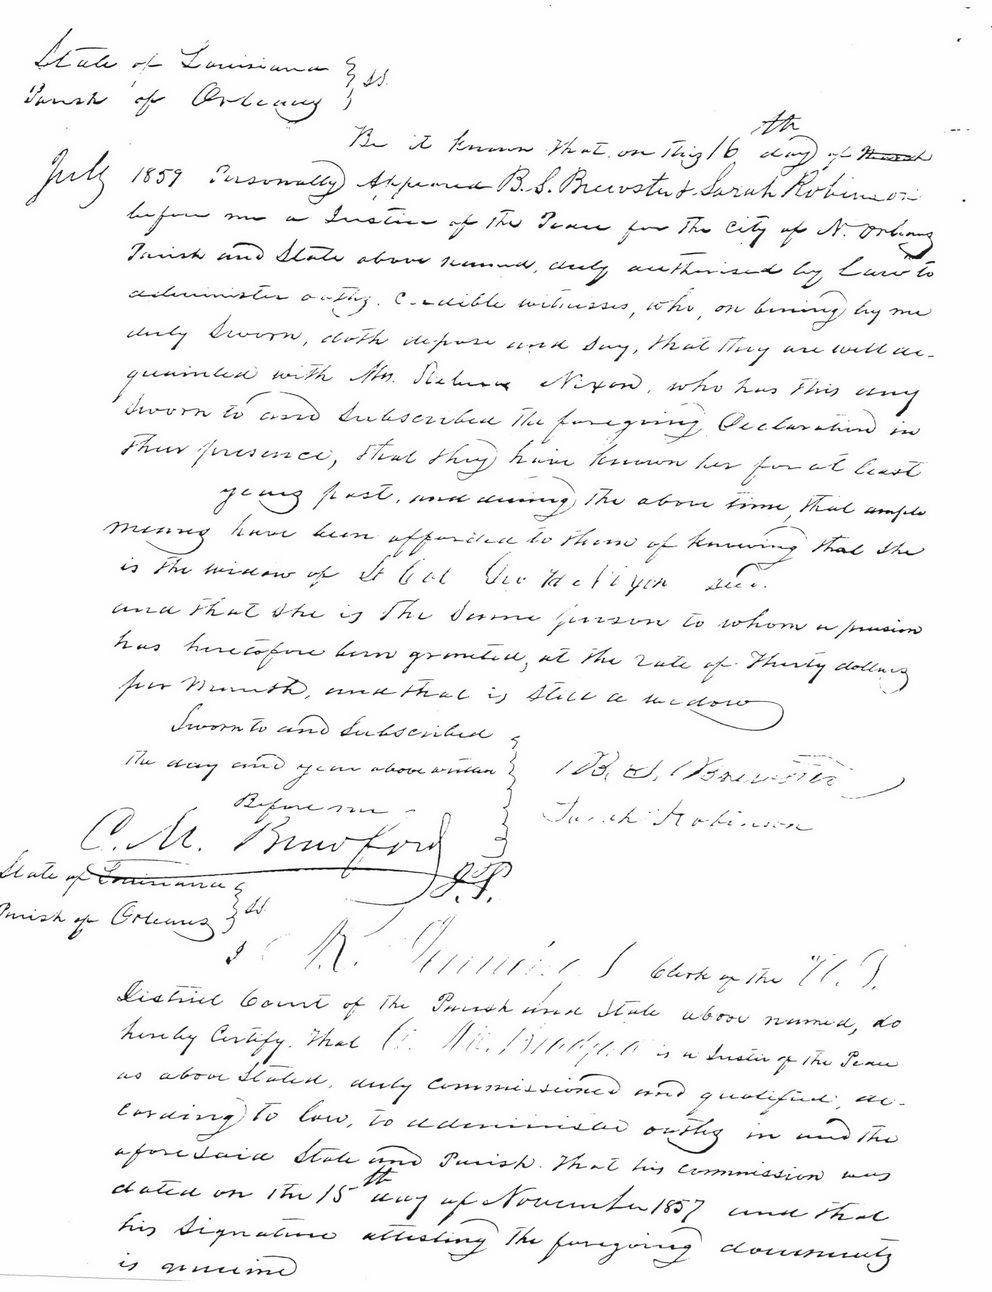 State of Louisiana } ss.
Parish of Orleans }
Be it known that on this 16th day of March
July 1859 Personally Appeared B. S. Brewster & Sarah Robinson
before me a Justice of the Peace for the City of N. Orleans
Parish and State above named, duly authorised by Law to
administer oaths. Credible witnesses, who, on being by me
duly Sworn, doth depose and say, that they are well ac-
quainted with Mrs. Nixon, who has this day
Sworn to and Subscribed the foregoing Declaration in
their presence, that they have known her for at least
years past, and during the above time, that ample
means have been afforded to them of knowing that she
is the widow of Lt Col Geo Nixon decd.
and that she is the same person to whom a pension
has heretofore been granted, at the rate of Thirty dollars
per Month, and that is still a widow
Sworn to and Subscribed
the day and year above written
Before me
B. S. Brewster
Sarah Robinson
C. M. Bradford
J.P.
State of Louisiana } ss.
Parish of Orleans }
I Clerk of the U. S.
District Court of the Parish and State above named, do
hereby Certify that C. M. Bradford is a Justice of the Peace
as above Stated, duly commissioned and qualified, ac-
cording to law, to administer oaths in and the
aforesaid State and Parish. that his commission was
dated on the 15th day of November 1857 and that
his Signature attesting the foregoing documents
is genuine